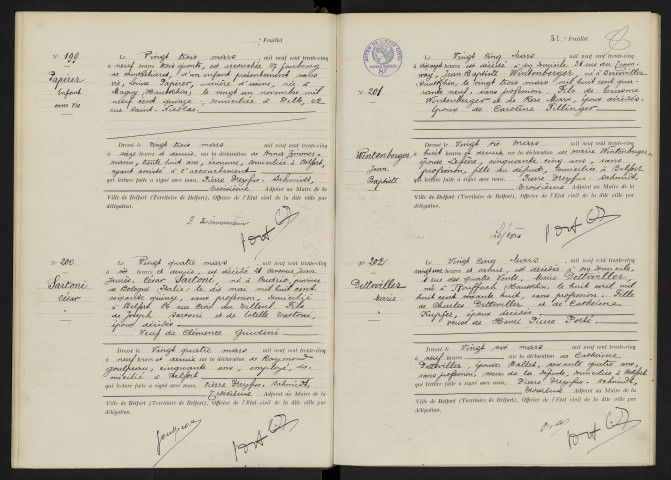 Feuillet
N° 199
Papirer
Enfant
sans vie
Le Vingt trois mars, mil neuf cent trente-cinq
à neuf heures trois quarts, est accouchée 27 faubourg
de Montbéliard, d'un enfant présentement sans
vie, Louise Papirer, née à
le vingt un novembre mil
neuf cent quinze, domiciliée à Delle,
rue Saint Nicolas.
Dressé le Vingt trois mars, mil neuf cent trente-cinq
à seize heures et demie, sur la déclaration de Anna Zimmer-
mann, trente huit ans, domiciliée à Belfort,
ayant assisté à l'accouchement
qui lecture faite a signé avec nous, Pierre Dreyfus-Schmidt,
troisième Adjoint au Maire de la
Ville de Belfort (Territoire de Belfort), Officier de l'Etat civil de la dite ville par
délégation.
N° 200
Sartoni
César
Le Vingt quatre mars, mil neuf cent trente-cinq
à six heures et demie, est décédé 21 avenue Jean
Jaurès, César Sartoni, né à Budrio, province
de Bologne (Italie) le dix mai mil huit cent
soixante quinze, sans profession, domicilié
à Belfort rue Croix du Tilleul. Fils
de Joseph Sartoni et de
époux décédés
Veuf de Clémence Guidini
Dressé le Vingt quatre mars, mil neuf cent trente-cinq
à neuf heures et demie sur la déclaration de Raymond
cinquante ans, employé, do-
micilié à Belfort
qui lecture faite a signé avec nous, Pierre Dreyfus-Schmidt,
troisième Adjoint au Maire de la
Ville de Belfort (Territoire de Belfort), Officier de l'Etat civil de la dite ville par
délégation.
51 Feuillet
N° 201
Wintenberger
Jean
Baptiste
Le Vingt cinq mars, mil neuf cent trente-cinq
heures est décédé à son domicile 21 rue du Tram-
way, Jean Baptiste Wintenberger, né à
Haut Rhin, le vingt trois mars mil huit cent qua-
rante neuf, sans profession. Fils de
Wintenberger et de Rose Marx, époux décédés.
Epoux de Caroline Tillinger
Dressé le Vingt six mars, mil neuf cent trente-cinq
à huit heures et demie sur la déclaration de Marie Wintenberger
épouse Lefèvre, cinquante cinq ans, sans
profession, fille du défunt, domiciliée à Belfort
qui lecture faite a signé avec nous, Pierre Dreyfus-Schmidt,
troisième Adjoint au Maire de la
Ville de Belfort (Territoire de Belfort), Officier de l'Etat civil de la dite ville par
délégation.
Lefèvre
N° 202
Dettwiller
Marie
Le Vingt cinq mars, mil neuf cent trente-cinq
à heures et demie, est décédée à son domicile,
rue des quatre Vents, Marie Dettwiller,
née à Rouffach Haut Rhin, le huit avril mil
huit cent soixante huit, sans profession. Fille
de Charles Dettwiller et de Catherine
Kupfer, époux décédés
veuve de Henri Pierre Porté
Dressé le Vingt six mars, mil neuf cent trente-cinq
à neuf heures sur la déclaration de Catherine
Dettwiller, épouse Hallet, soixante quatre ans,
sans profession, sœur de la défunte, domiciliée à Belfort
qui lecture faite a signé avec nous, Pierre Dreyfus-Schmidt,
troisième Adjoint au Maire de la
Ville de Belfort (Territoire de Belfort), Officier de l'Etat civil de la dite ville par
délégation.